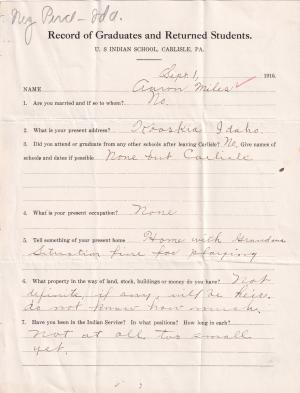 Nez Perce - Ida.
Record of Graduates and Returned Students.
U. S INDIAN SCHOOL, CARLISLE, PA.
Sept. 1, 1916.
NAME Aaron Miles
1. Are you married and if so to whom? No.
2. What is your present address? Kooskia Idaho.
3. Did you attend or graduate from any other schools after leaving Carlisle? No. Give names of
schools and dates if possible None but Carlisle
4. What is your present occupation? None
5. Tell something of your present home Home with Grandma
Situation fine for playing
6. What property in the way of land, stock, buildings or money do you have? Not
definite, if any, will be heir.
do not know how much.
7. Have you been in the Indian Service? In what positions? How long in each?
Not at all, too small
yet.